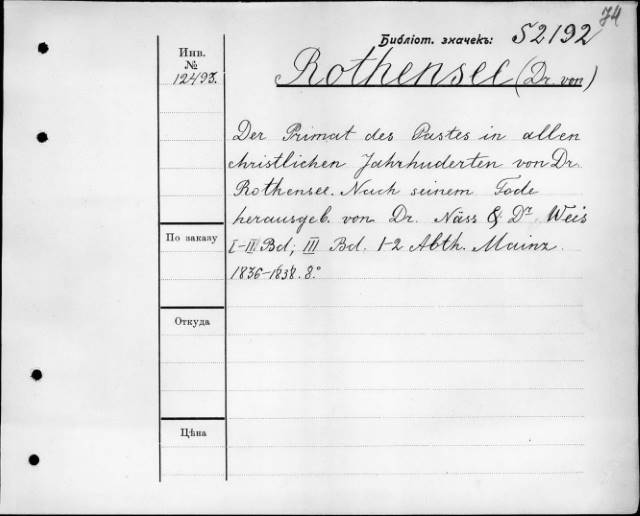 74
Библіот. значекъ: S2192
Инв.
№
12493.
Rothensee (Dr. von)
Der Primat des Pastes in allen
christlichen Jahrhuderten von Dr.
Rothensee. Nach seinem Tode
herausgeb. von Dr. Näss & Dr Weis
I-II Bd; III Bd. 1-2 Abth. Mainz.
1836-1838. 8.°
По заказу
Откуда
Цѣна